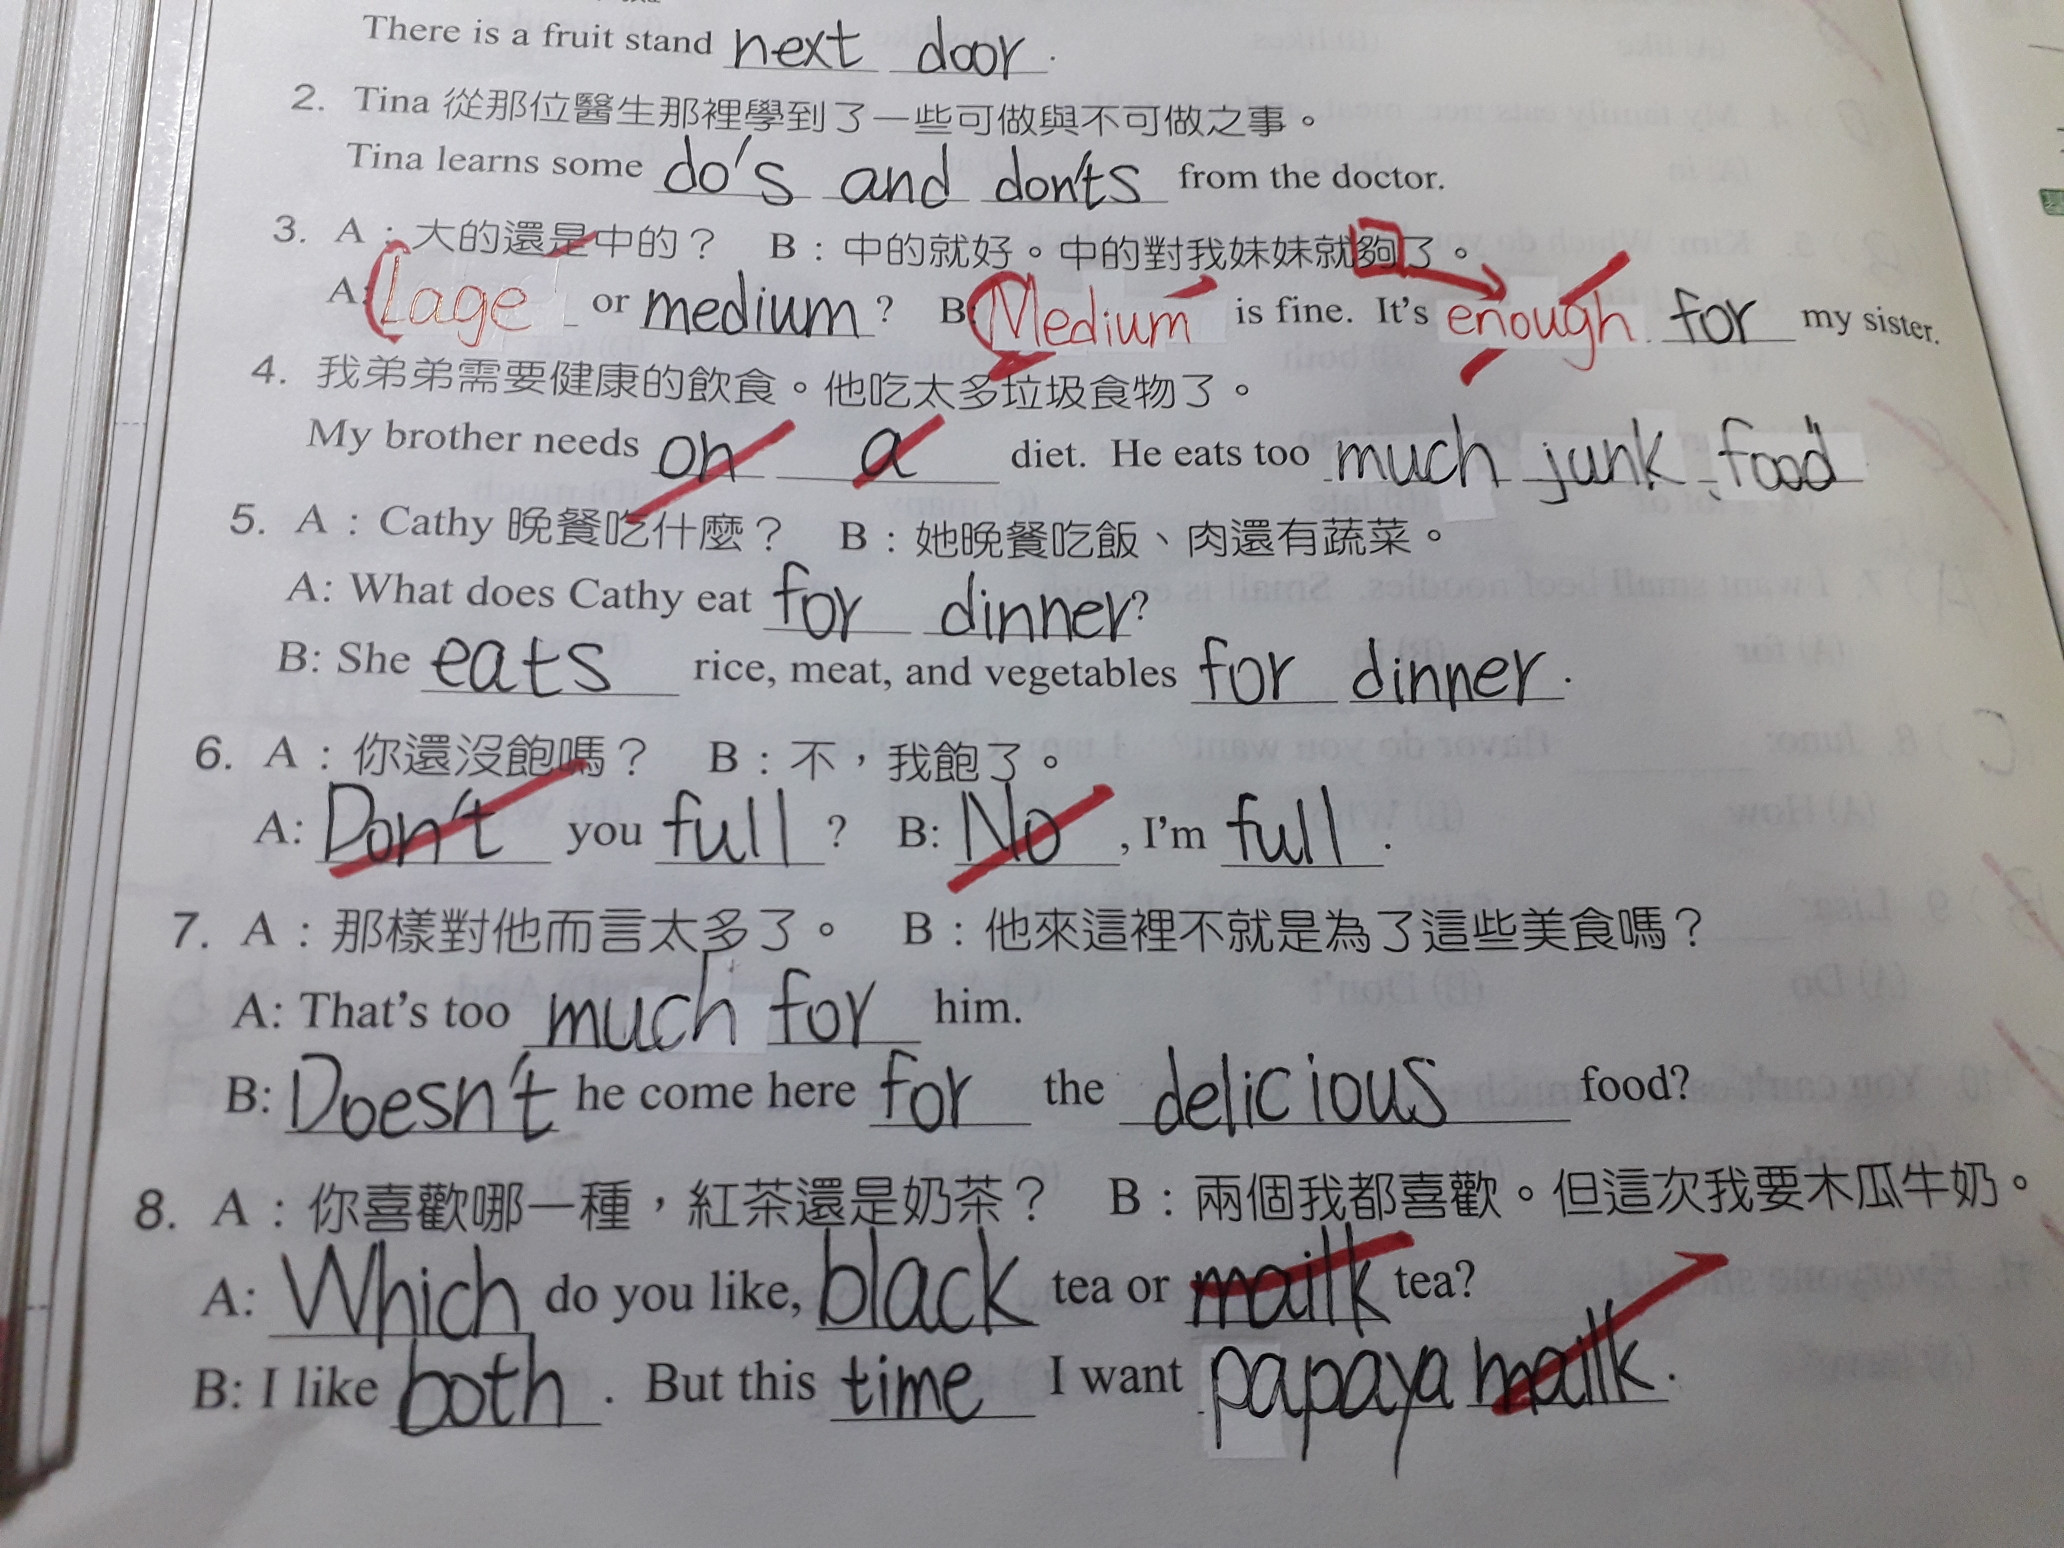 There is a fruit stand next door.
2. Tina 從那位醫生那裡學到了一些可做與不可做之事。
Tina learns some do's and don'ts from the doctor.
3. A：大的還是中的？ B：中的就好。中的對我妹妹就夠了。
A: Lage or medium? B: Medium is fine. It's enough for my sister.
4. 我弟弟需要健康的飲食。他吃太多垃圾食物了。
My brother needs on a diet. He eats too much junk food.
5. A：Cathy 晚餐吃什麼？ B：她晚餐吃飯、肉還有蔬菜。
A: What does Cathy eat for dinner?
B: She eats rice, meat, and vegetables for dinner.
6. A：你還沒飽嗎？ B：不，我飽了。
A: Don't you full? B: No, I'm full.
7. A：那樣對他而言太多了。 B：他來這裡不就是為了這些美食嗎？
A: That's too much for him.
B: Doesn't he come here for the delicious food?
8. A：你喜歡哪一種，紅茶還是奶茶？ B：兩個我都喜歡。但這次我要木瓜牛奶。
A: Which do you like, black tea or mailk tea?
B: I like both. But this time I want papaya mailk.